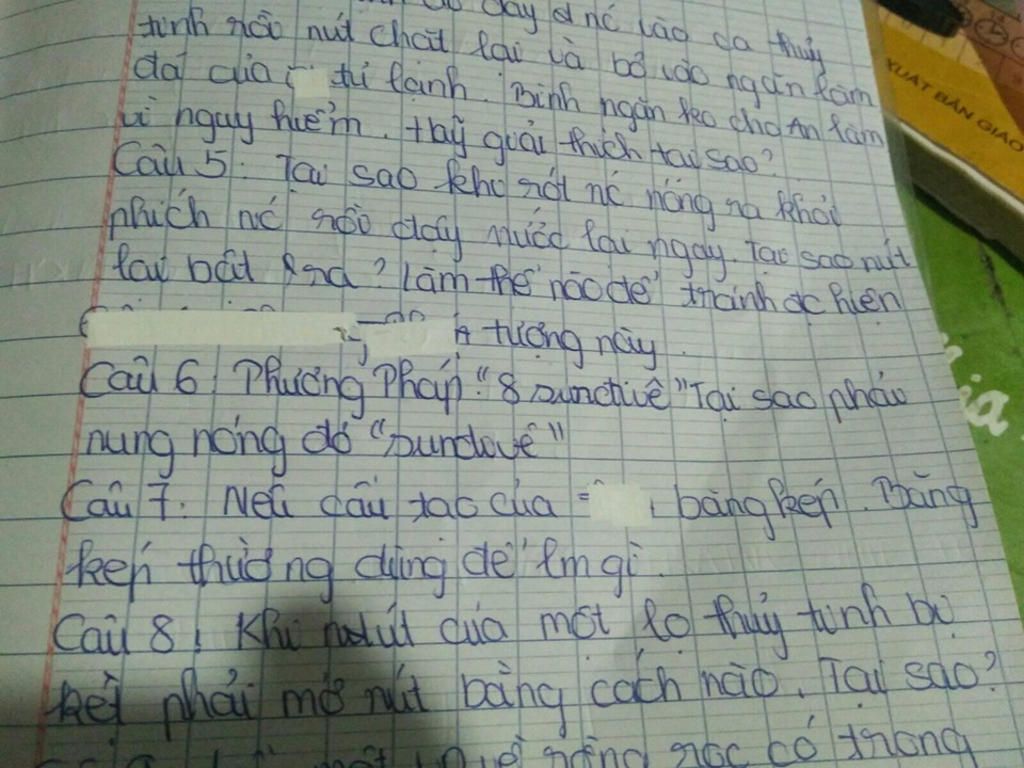 day đ nć vào da thủy
tinh rồi nút chặt lại và bỏ vào ngăn làm
đá của tủ lạnh. Bình ngăn ko cho An làm
vì nguy hiểm. Hãy giải thích tại sao?
Câu 5: Tại sao khi rót nć nóng ra khỏi
phích nć rồi đậy nước lại ngay. Tại sao nút
lại bật ra? Làm thế nào để tránh đc hiện
tượng này.
Câu 6: Phương Pháp "8
" Tại sao phải
nung nóng đỏ "
"
Câu 7: Nêu cấu tạo của băng kép. Băng
kép thường dùng để lm gì.
Câu 8: Khi nút của một lọ thủy tinh bị
kẹt phải mở nút bằng cách nào. Tại sao?
ròng rọc có trong
XUẤT BẢN GIÁO